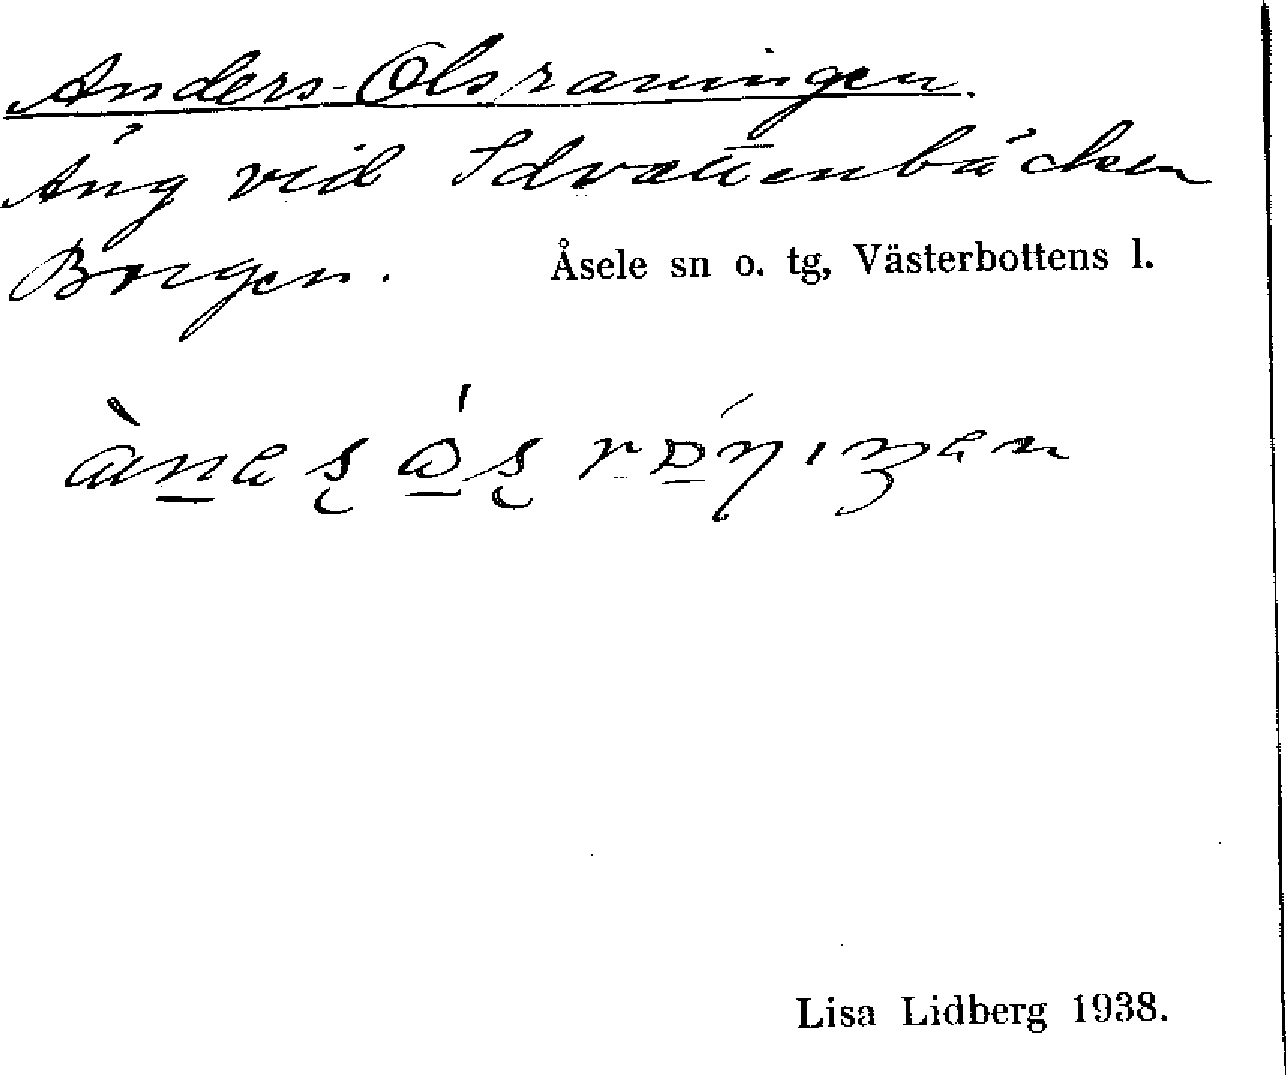 Anders-Olsraningen.
Äng vid Idvattenbäcken
Borgen. Åsele sn o. tg, Västerbottens l.
Lisa Lidberg 1938.